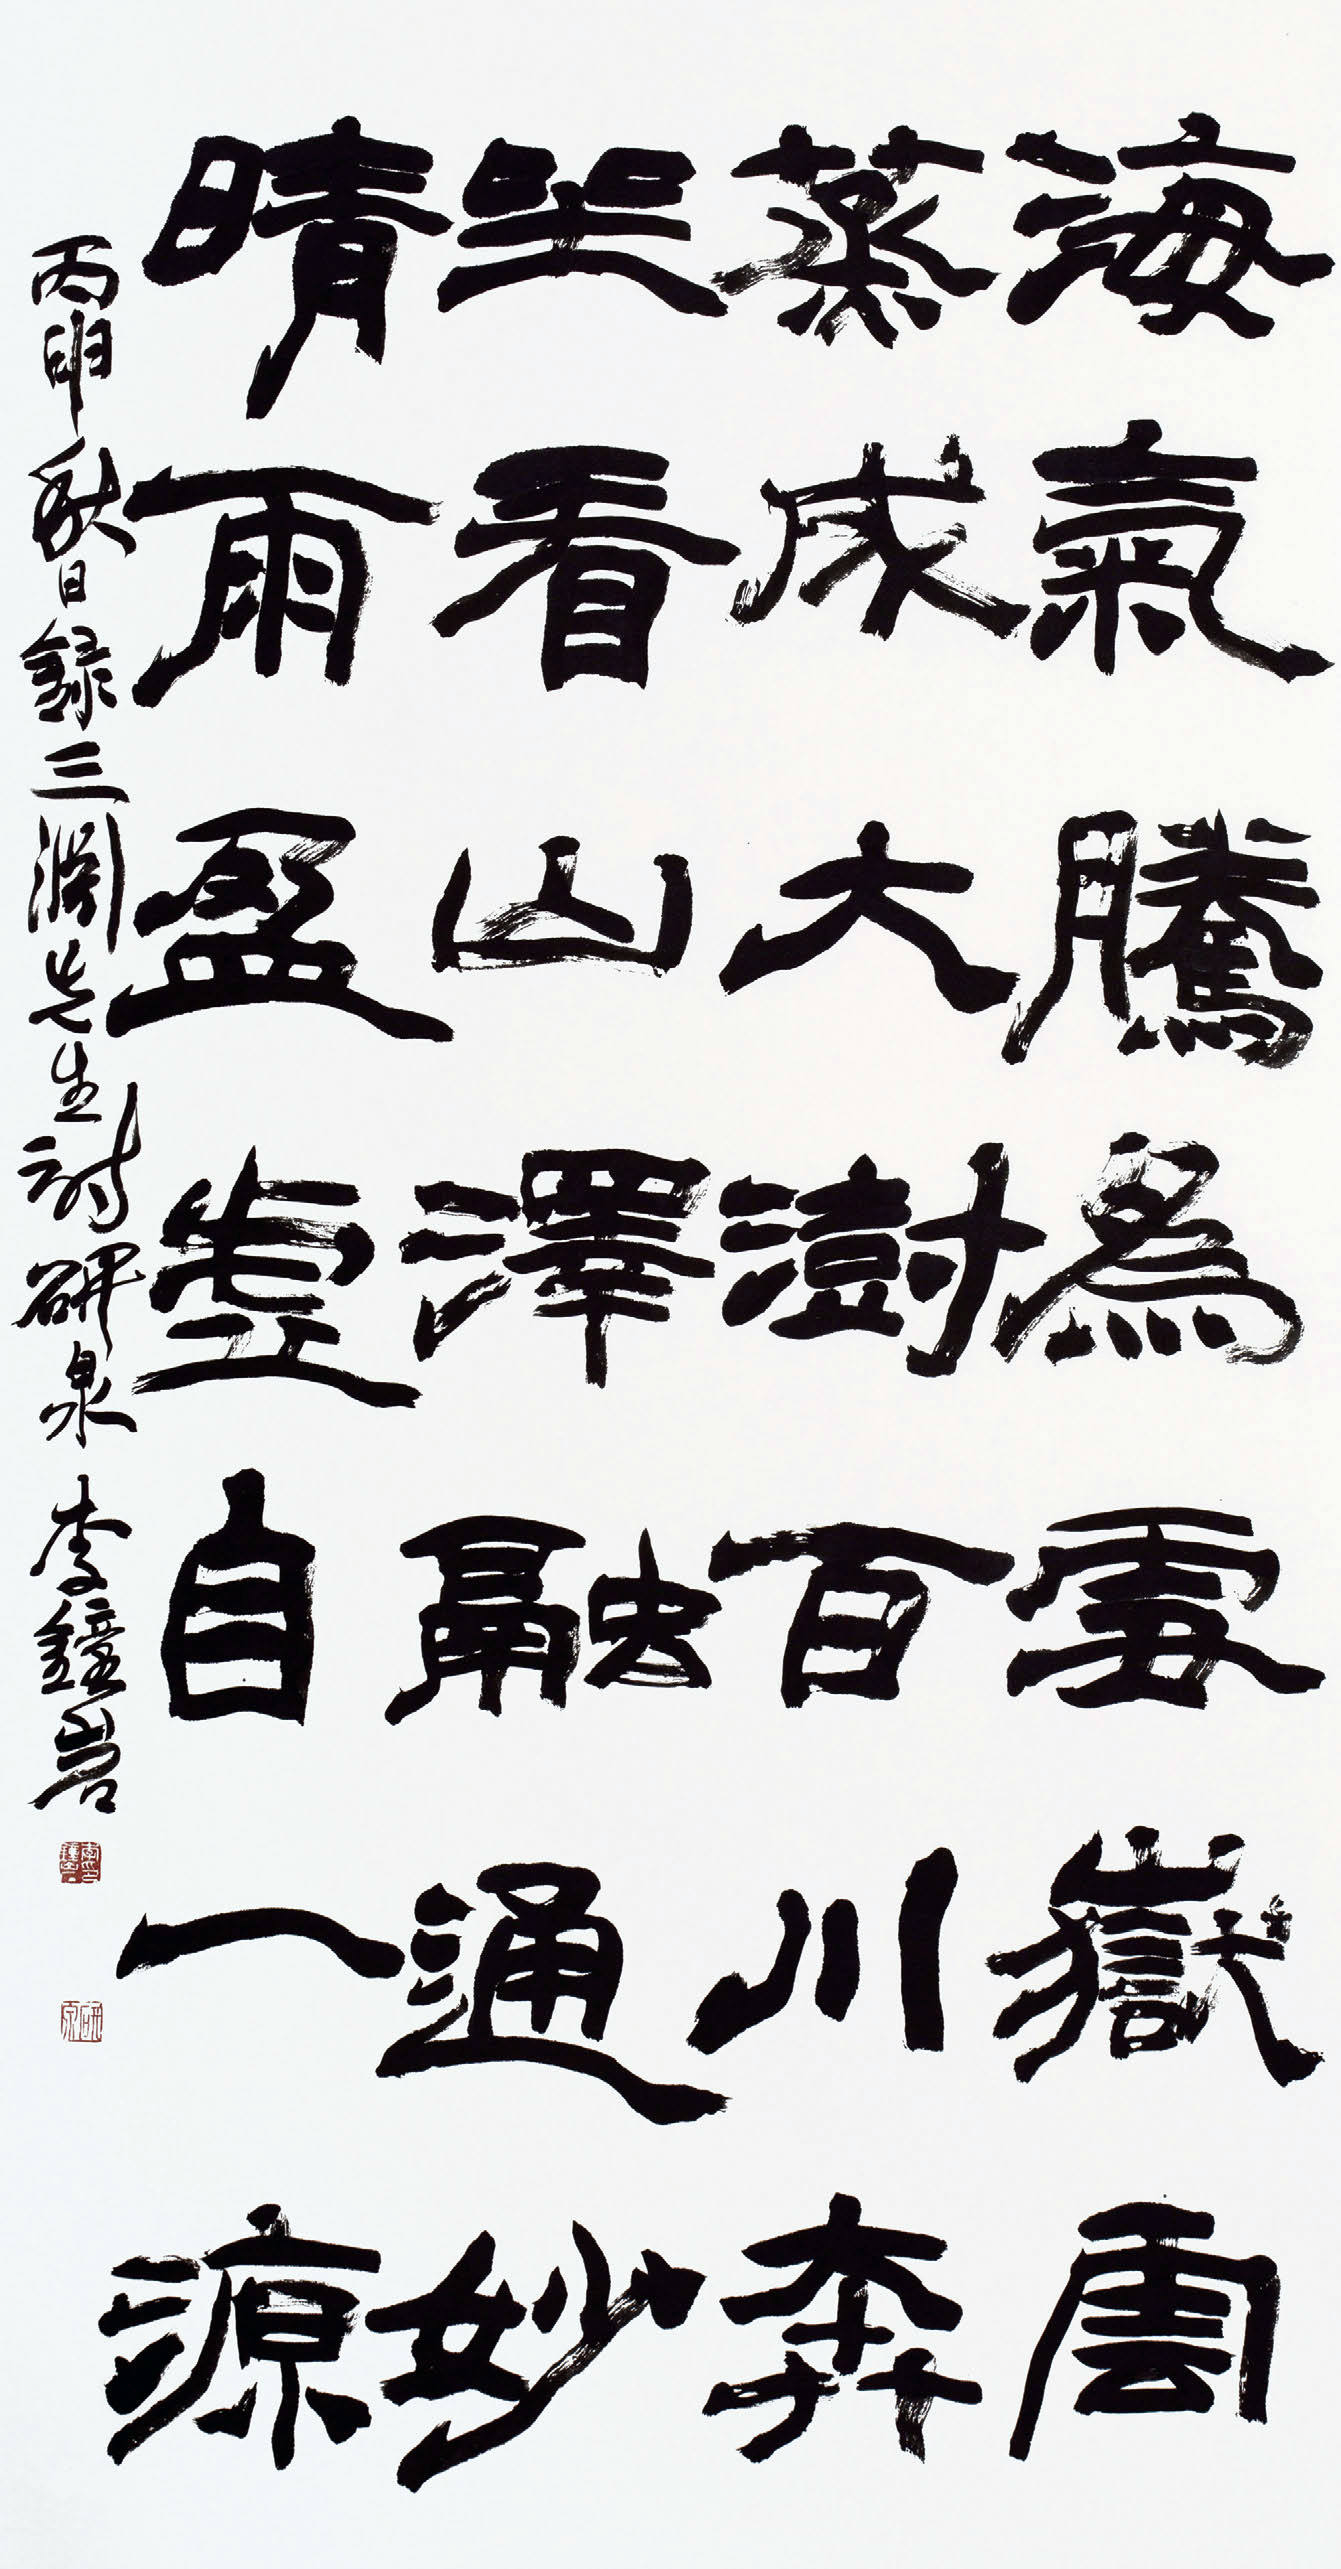 海氣騰爲雪嶽雲
蒸成大澍百川奔
坐看山澤融通妙
晴雨盈虛自一源
丙申秋日錄三淵先生詩研泉李鐘岩